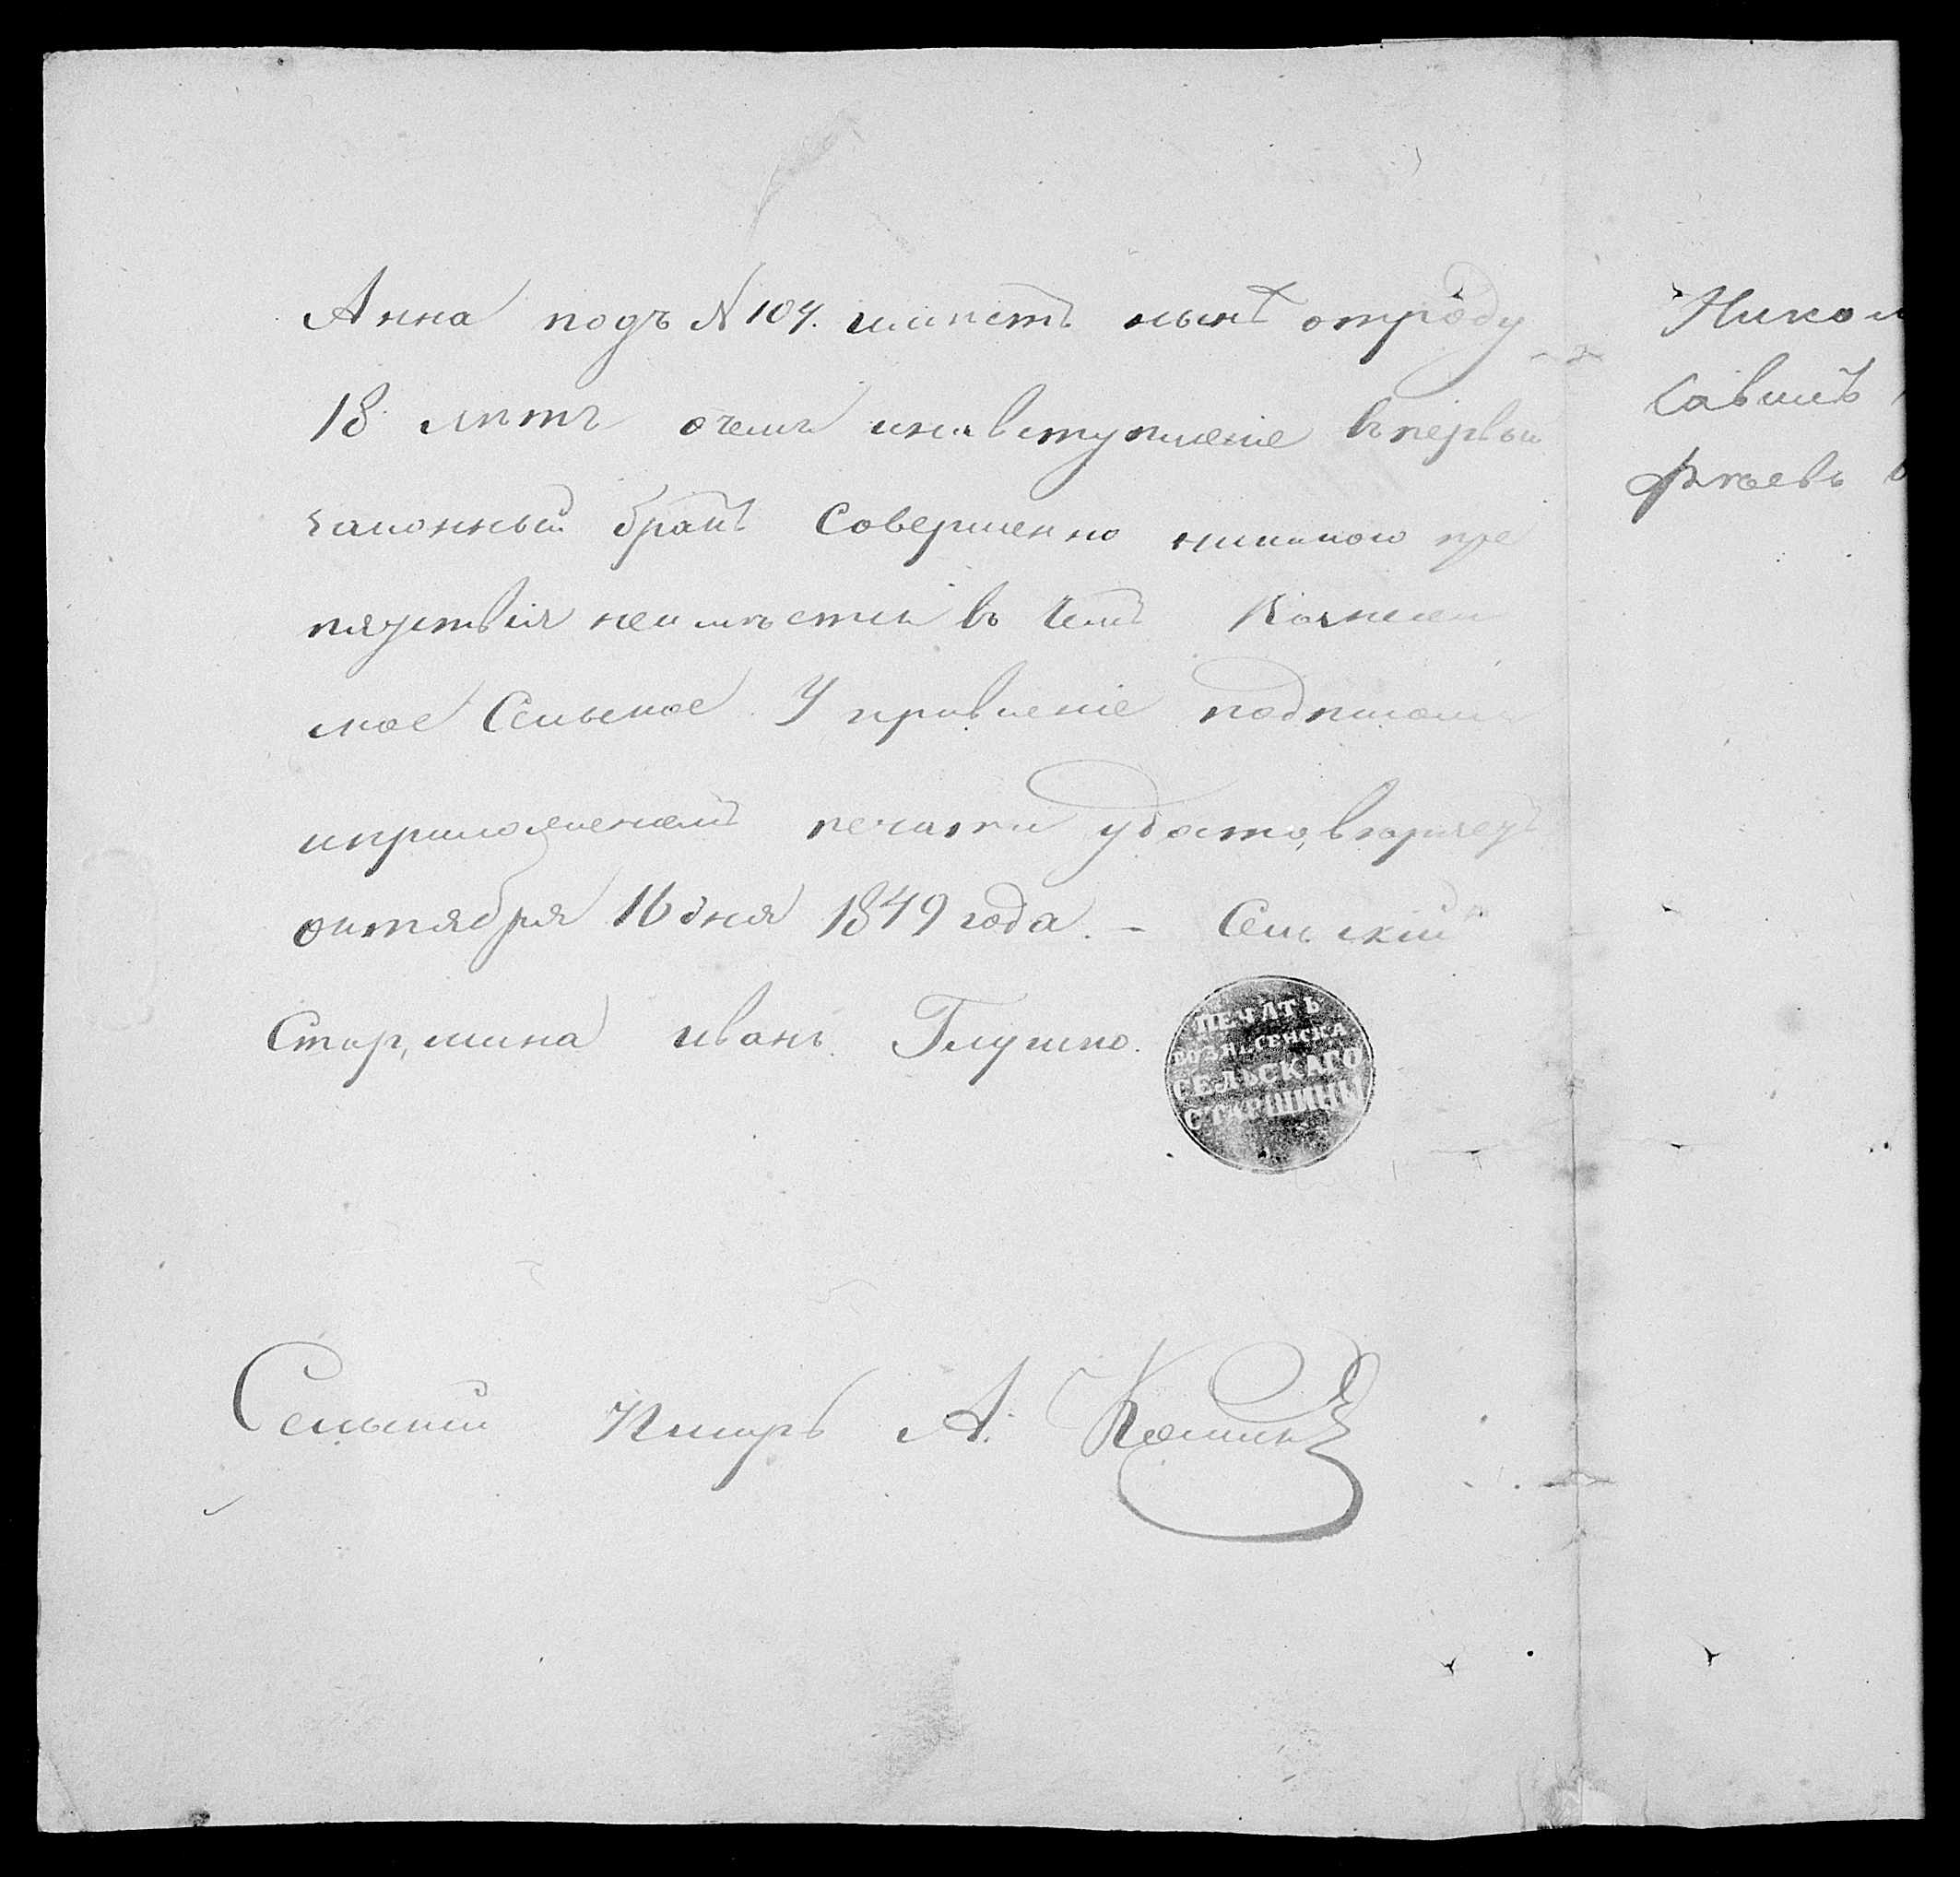 Анна подъ № 104. имѣетъ нынѣ отроду
18 лѣтъ очемъ инавступленіе въпервый
законный бракъ Совершенно никакого пре
пятствія неимѣетъ въ чемъ
ское Сельское Управленіе подписомъ
иприложеніемъ печати удостовѣряетъ
октября 16 дня 1849 года. - Сельскій
Старшина иванъ Глушко.
ПЕЧАТЬ
ВОЗНЕСЕНСКА
СЕЛЬСКАГО
СТАРШИНЫ
Сельскій Писарь А.
Никол